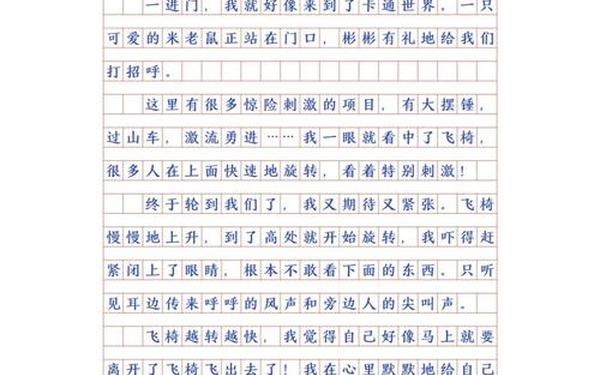 一进门，我就好像来到了卡通世界。一只
可爱的米老鼠正站在门口，彬彬有礼地给我们
打招呼。
这里有很多惊险刺激的项目，有大摆锤，
过山车，激流勇进……我一眼就看中了飞椅，
很多人在上面快速地旋转，看着特别刺激！
终于轮到我们了，我又期待又紧张。飞椅
慢慢地上升，到了高处就开始旋转，我吓得赶
紧闭上了眼睛，根本不敢看下面的东西。只听
见耳边传来呼呼的风声和旁边人的尖叫声。
飞椅越转越快，我觉得自己好像马上就要
离开了飞椅飞出去了！我在心里默默地给自己